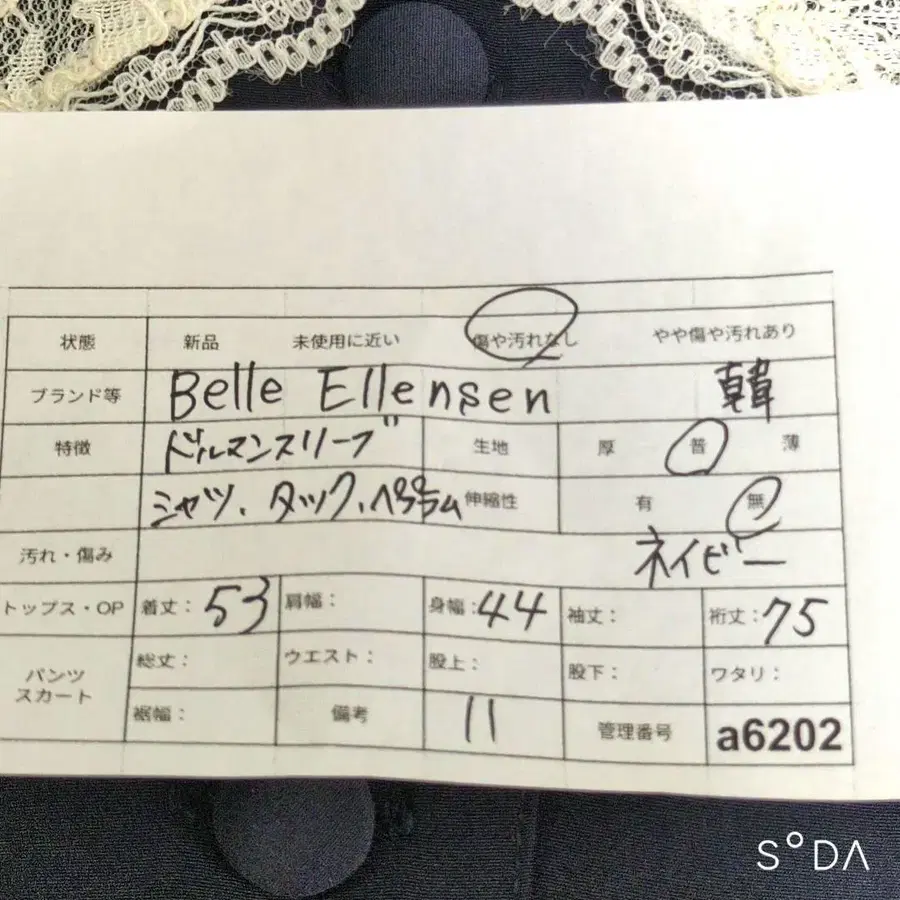 状態 新品 未使用に近い 傷や汚れなし やや傷や汚れあり
ブランド等 Belle Ellensen 韓
特徴 ドルマンスリーブ 生地 厚 普 薄
シャツ、タック、ペプラム 伸縮性 有 無
汚れ・傷み ネイビー
トップス・OP 着丈: 53 肩幅: 身幅: 44 袖丈: 裄丈: 75
パンツ スカート 総丈: ウエスト: 股上: 股下: ワタリ:
裾幅: 備考 11 管理番号 a6202
SODA